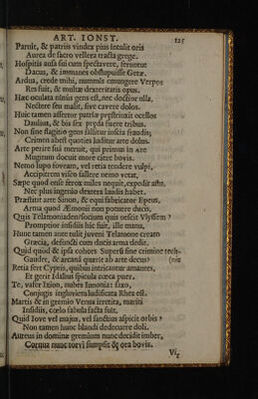 ART. IONST. 125
Paruit, & patriis vindex pius intulit oris
Aurea de sacro vellera tracta grege.
Hospitis ausa siti cum spectavere, feruntur
Dacus, & immanes obstupuisse Getæ.
Ardua, crede mihi, nummis emungere Verpos
Res fuit, & multæ dexteritatis opus.
Hæc oculata nimis gens est, nec doctior ulla,
Nectere seu malit, sive cavere dolos.
Huic tamen asserere patriæ præstrinxit ocellos
Daulus, & bis sex præda fuere tribus.
Non sine flagitio gens fallitur inscia fraudis;
Crimen abest quoties luditur arte dolus.
Arte perire sua meruit, qui primus in ære
Mugitum docuit more ciere bovis.
Nemo lupo foveam, vel retia tendere vulpi,
Accipitrem visco fallere nemo vetat.
Sæpe quod ense ferox miles nequit, expedit astu,
Nec plus ingenio dextera laudis habet.
Præstitit arte Sinon, & equi fabricator Epeus,
Arma quod Æmonii non potuere ducis.
Quis Telamoniaden socium quis nescit Vlyssem?
Promptior insidiis hic fuit, ille manu,
Hunc tamen ante tulit juveni Telamone creato
Græcia, defuncti cum ducis arma dedit.
Quid quod & ipsa cohors Superum sine crimine tech-
Gaudet, & arcanâ quærit ab arte decus? (nis
Retia fert Cypris, quibus intricantur amantes,
Et gerit Idalius spicula cæca puer.
Te, vafer Ixion, nubes Iunonia; saxo,
Conjugis ingluviem ludificata Rhea est.
Martis & in gremio Venus irretita, mariti
Insidiis, cœlo fabula facta fuit.
Quid Iove vel majus, vel sanctius aspicit orbis?
Non tamen hunc blandi dedecuere doli.
Aureus in dominæ gremium nunc decidit imber,
Cornua nunc torvi sumpsit & ora bovis.
Vir